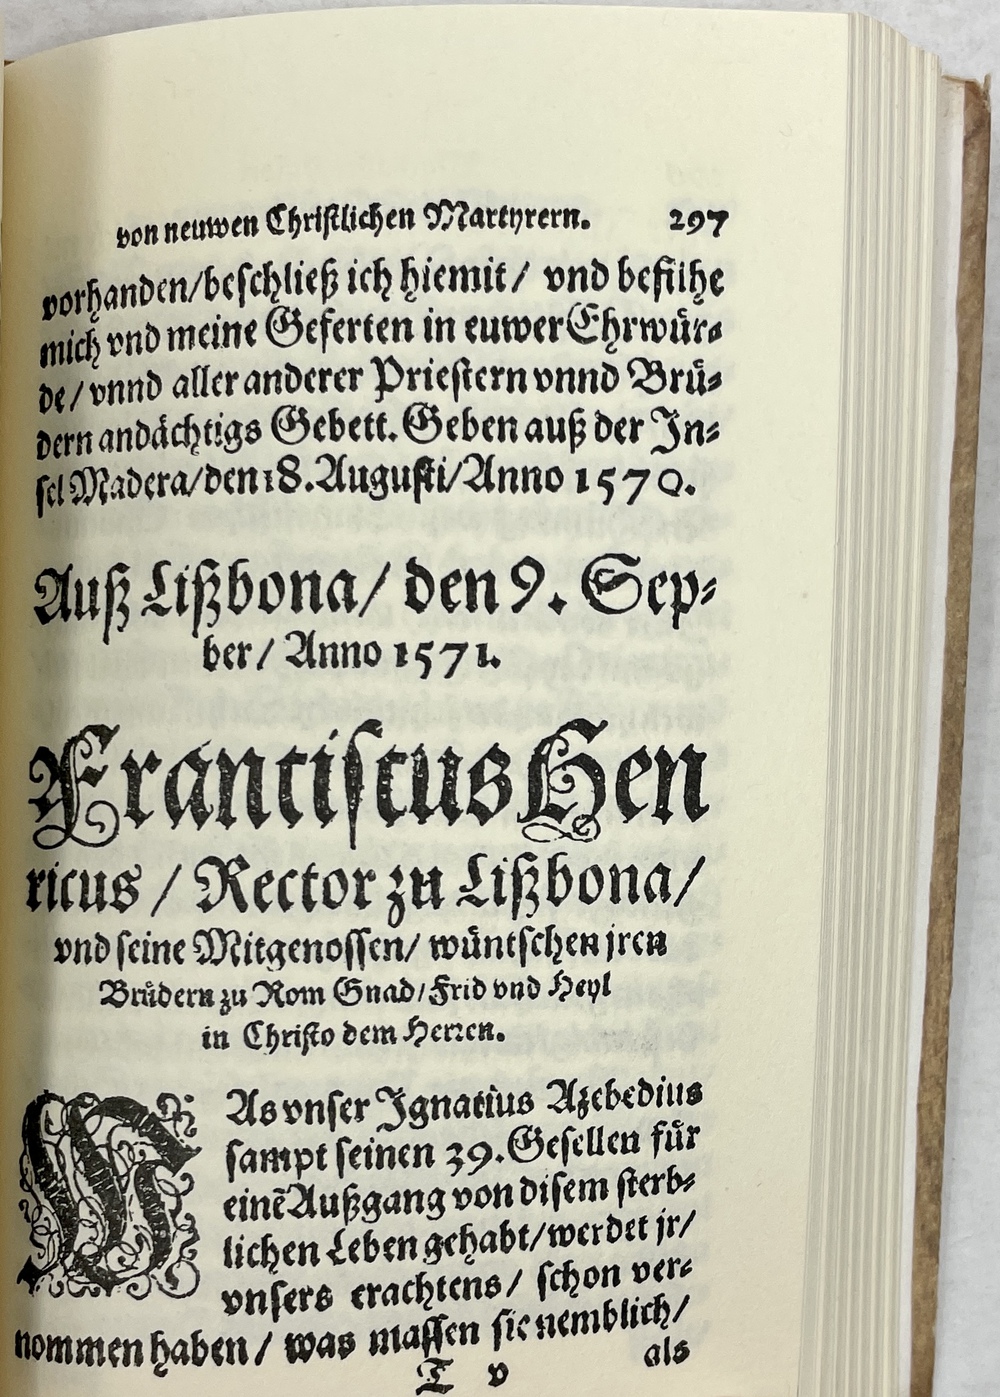 von neuwen Christlichen Martyrern. 297
vorhanden/beschließ ich hiemit/ vnd befilhe
mich vnd meine Geferten in euwer Ehrwür⸗
de/ vnnd aller anderer Priestern vnnd Brü⸗
dern andächtigs Gebett. Geben auß der In⸗
sel Madera/den 18. Augusti/Anno 1570.
Auß Lißbona/ den 9. Sep⸗
ber/ Anno 1571.
Franciscus Hen
ricus / Rector zu Lißbona/
vnd seine Mitgenossen/ wüntschen jren
Brüdern zu Rom Gnad/Frid vnd Heyl
in Christo dem Herren.
WAs vnser Ignatius Azebedius
sampt seinen 39. Gesellen für
einẽ Außgang von disem sterb⸗
lichen Leben gehabt/werdet jr/
vnsers erachtens/ schon ver⸗
nommen haben/ was massen sie nemblich/
T v als